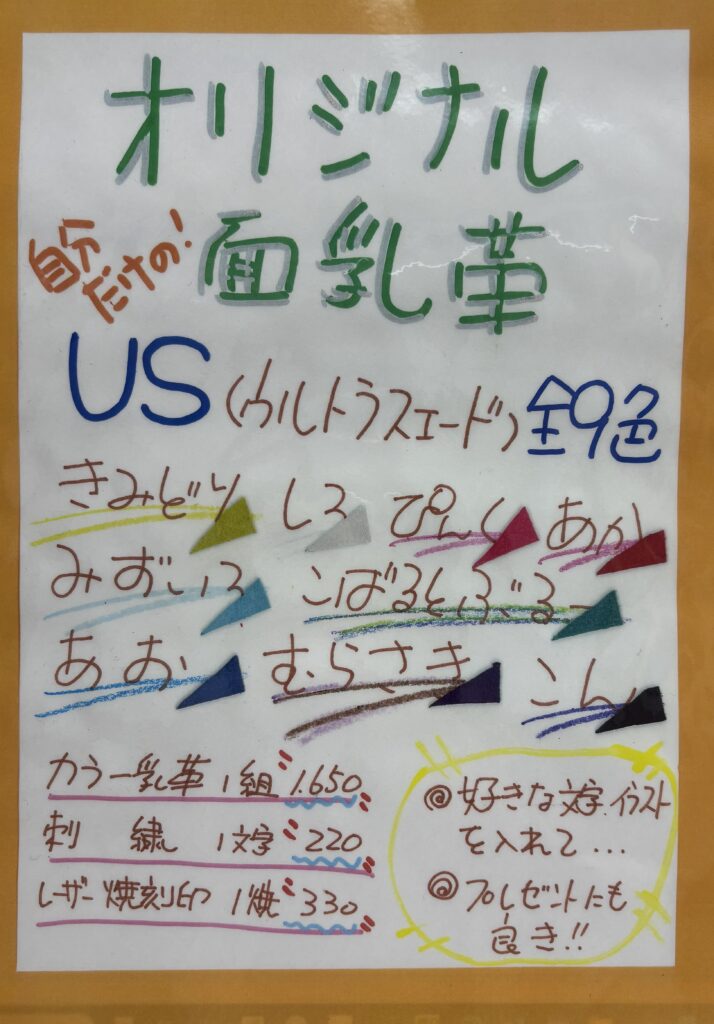 オリジナル
自分だけの!
面乳革
US(ウルトラスエード)全9色
きみどり しろ ぴんく あか
みずいろ こばるとぶるー
あお むらさき こん
カラー乳革 1組 1.650
刺繍 1文字 220
レーザー焼刻印 1焼 330
◎好きな文字.イラスト
を入れて...
◎プレゼントにも
良き!!